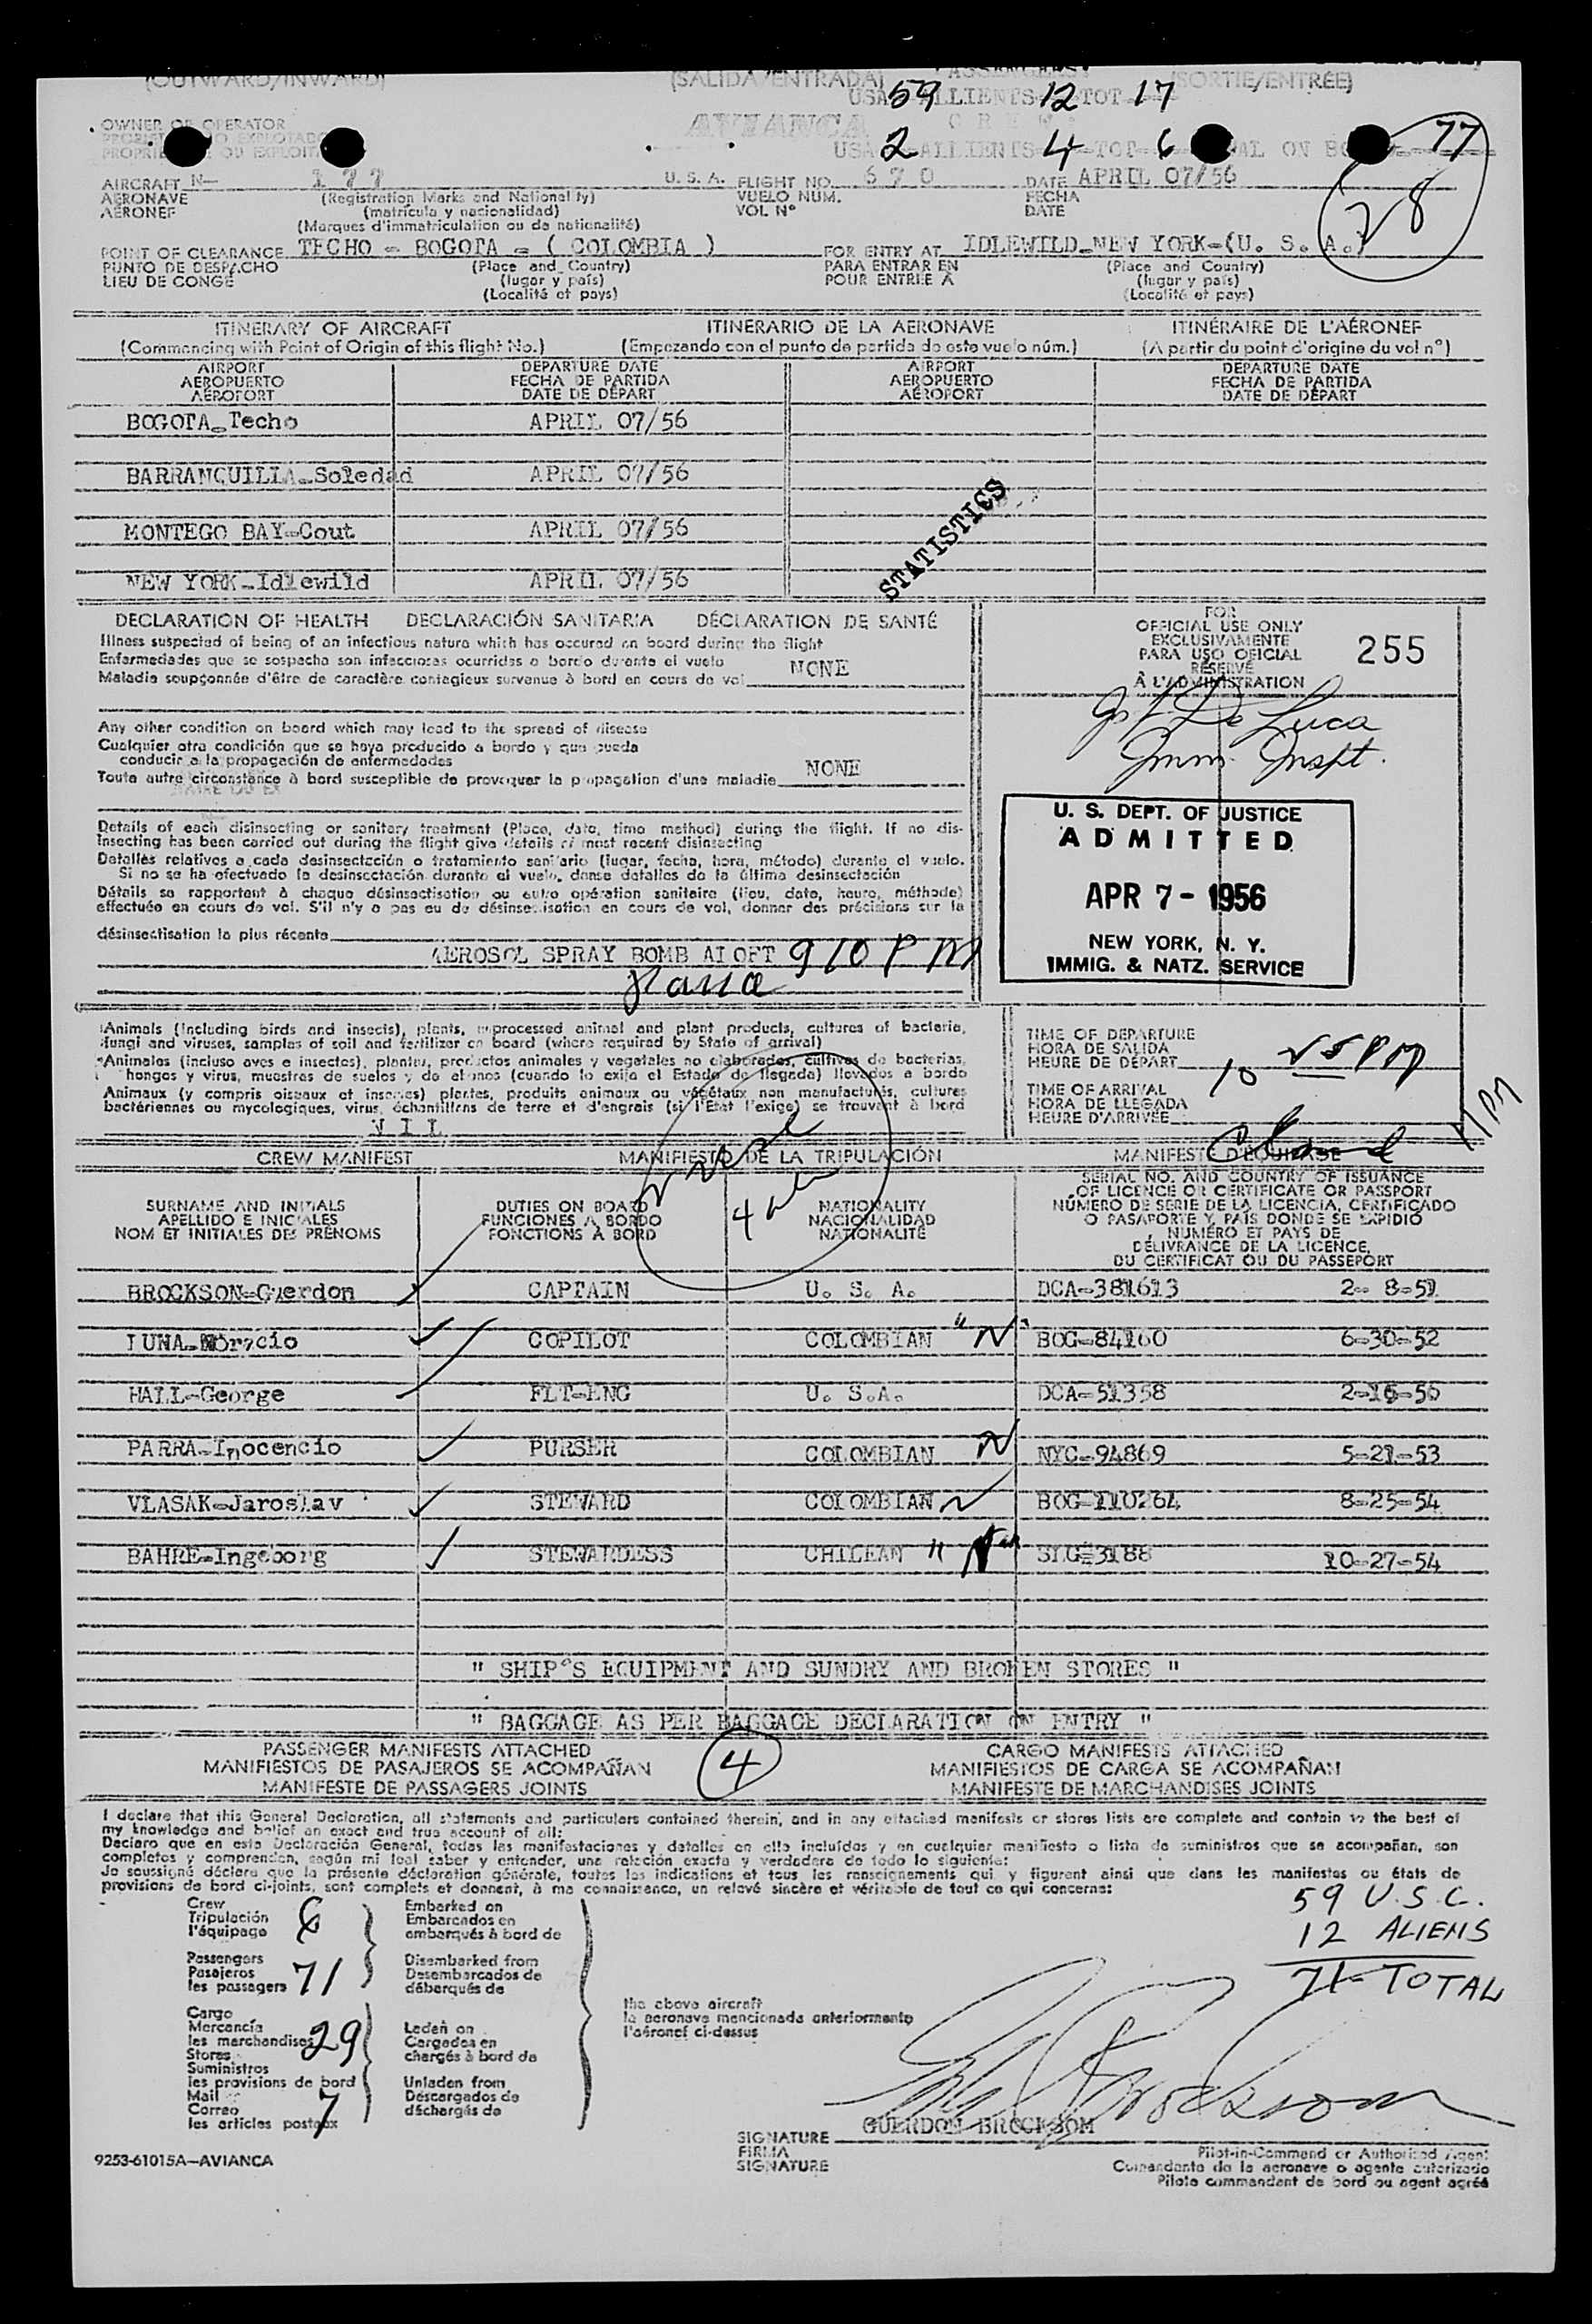 (OUTWARD/INWARD) (SALIDA/ENTRADA) PASSENGERS: (SORTIE/ENTRÉE)
USA 59 ALLIENTS 12 TOT 17
OWNER OR OPERATOR
AVIANCA C R E W :
USA 2 ALLIENTS 4 TOT 6 ON 77
28
AIRCRAFT N- 177 U. S. A. FLIGHT NO. 670 DATE APRIL 07/56
AERONAVE (Registration Marks and Nationality) VUELO NUM. FECHA
AÉRONEF (matrícula y nacionalidad) VOL Nº DATE
(Marques d'immatriculation ou de nationalité)
POINT OF CLEARANCE TECHO - BOGOTA - ( COLOMBIA ) FOR ENTRY AT IDLEWILD-NEW YORK-(U. S. A.)
PUNTO DE DESPACHO (Place and Country) PARA ENTRAR EN (Place and Country)
LIEU DE CONGÉ (lugar y país) POUR ENTRÉE À (lugar y país)
(Localité et pays) (Localité et pays)
ITINERARY OF AIRCRAFT ITINERARIO DE LA AERONAVE ITINÉRAIRE DE L'AÉRONEF
(Commencing with Point of Origin of this flight No.) (Empezando con el punto de partida de este vuelo núm.) (A partir du point d'origine du vol nº)
AIRPORT DEPARTURE DATE AIRPORT DEPARTURE DATE
AEROPUERTO FECHA DE PARTIDA AEROPUERTO FECHA DE PARTIDA
AÉROPORT DATE DE DÉPART AÉROPORT DATE DE DÉPART
BOGOTA-Techo APRIL 07/56
BARRANQUILLA-Soledad APRIL 07/56
MONTEGO BAY-Cout APRIL 07/56
STATISTICS
NEW YORK-Idlewild APRIL 07/56
DECLARATION OF HEALTH DECLARACIÓN SANITARIA DÉCLARATION DE SANTÉ
Illness suspected of being of an infectious nature which has occured on board during the flight
Enfermedades que se sospecha son infecciosas ocurridas a bordo durante el vuelo
Maladie soupçonnée d'être de caractère contagieux survenue à bord en cours de vol NONE
Any other condition on board which may lead to the spread of disease
Cualquier otra condición que se haya producido a bordo y que pueda
conducir a la propagación de enfermedades
Toute autre circonstance à bord susceptible de provoquer la propagation d'une maladie NONE
Details of each disinsecting or sanitary treatment (Place, date, time method) during the flight. If no dis-
insecting has been carried out during the flight give details of most recent disinsecting
Detalles relativos a cada desinsectación o tratamiento sanitario (lugar, fecha, hora, método) durante el vuelo.
Si no se ha efectuado la desinsectación durante el vuelo, dense detalles de la última desinsectación
Détails se rapportent à chaque désinsectisation ou autre opération sanitaire (lieu, date, heure, méthode)
effectuée en cours de vol. S'il n'y a pas eu de désinsectisation en cours de vol, donner des précisions sur la
désinsectisation la plus récente
AEROSOL SPRAY BOMB ALOFT 910 PM
Parra
FOR
OFFICIAL USE ONLY
EXCLUSIVAMENTE
PARA USO OFICIAL
RÉSERVÉ
À L'ADMINISTRATION
255
De Luca
Imm. Inspt.
U. S. DEPT. OF JUSTICE
ADMITTED
APR 7 - 1956
NEW YORK, N. Y.
IMMIG. & NATZ. SERVICE
Animals (including birds and insects), plants, unprocessed animal and plant products, cultures of bacteria,
fungi and viruses, samples of soil and fertilizer on board (where required by State of arrival)
Animales (incluso aves e insectos), plantas, productos animales y vegetales no elaborados, cultivos de bacterias,
hongos y virus, muestras de suelos y de abonos (cuando lo exija el Estado de llegada) llevados a bordo
Animaux (y compris oiseaux et insectes) plantes, produits animaux ou végétaux non manufacturés, cultures
bactériennes ou mycologiques, virus, échantillons de terre et d'engrais (si l'État l'exige) se trouvant à bord
N I L
TIME OF DEPARTURE
HORA DE SALIDA
HEURE DE DÉPART
10 25 PM
TIME OF ARRIVAL
HORA DE LLEGADA
HEURE D'ARRIVÉE
CREW MANIFEST MANIFIESTO DE LA TRIPULACIÓN MANIFESTE D'ÉQUIPAGE
SURNAME AND INITIALS DUTIES ON BOARD NATIONALITY SERIAL NO. AND COUNTRY OF ISSUANCE
APELLIDO E INICIALES FUNCIONES A BORDO NACIONALIDAD OF LICENCE OR CERTIFICATE OR PASSPORT
NOM ET INITIALES DES PRÉNOMS FONCTIONS À BORD NATIONALITÉ NÚMERO DE SERIE DE LA LICENCIA, CERTIFICADO
O PASAPORTE Y PAÍS DONDE SE EXPIDIÓ
NUMÉRO ET PAYS DE
DÉLIVRANCE DE LA LICENCE,
DU CERTIFICAT OU DU PASSEPORT
BROCKSON-Guerdon CAPTAIN U. S. A. DCA-381613 2- 8-51
LUNA-Horacio COPILOT COLOMBIAN "N" BOG-84160 6-30-52
HALL-George FLT-ENG U. S.A. DCA-51358 2-16-56
PARRA-Inocencio PURSER COLOMBIAN N NYC-94869 5-21-53
VLASAK-Jaroslav STEWARD COLOMBIAN N BOG-110264 8-25-54
BAHRE-Ingeborg STEWARDESS CHILEAN "N" SLG-3188 10-27-54
" SHIP'S EQUIPMENT AND SUNDRY AND BROKEN STORES "
" BAGGAGE AS PER BAGGAGE DECLARATION ON ENTRY "
PASSENGER MANIFESTS ATTACHED CARGO MANIFESTS ATTACHED
MANIFIESTOS DE PASAJEROS SE ACOMPAÑAN 4 MANIFIESTOS DE CARGA SE ACOMPAÑAN
MANIFESTE DE PASSAGERS JOINTS MANIFESTE DE MARCHANDISES JOINTS
I declare that this General Declaration, all statements and particulars contained therein, and in any attached manifests or stores lists are complete and contain to the best of
my knowledge and belief an exact and true account of all:
Declaro que en esta Declaración General, todas las manifestaciones y detalles en ella incluídas y en cualquier manifiesto o lista de suministros que se acompañan, son
completos y comprenden, según mi leal saber y entender, una relación exacta y verdadera de todo lo siguiente:
Je soussigné déclare que la présente déclaration générale, toutes les indications et tous les renseignements qui y figurent ainsi que dans les manifestes ou états de
provisions de bord ci-joints, sont complets et donnent, à ma connaissance, un relevé sincère et véritable de tout ce qui concerne:
Crew Embarked on
Tripulación 6 Embarcados en
l'équipage embarqués à bord de
Passengers Disembarked from
Pasajeros 71 Desembarcados de
les passagers débarqués de
Cargo
Mercancía Laden on
les marchandises 29 Cargados en
Stores chargés à bord de
Suministros
les provisions de bord Unladen from
Mail Descargados de
Correo 7 déchargés de
les articles postaux
the above aircraft
la aeronave mencionada anteriormente
l'aéronef ci-dessus
59 U.S.C.
12 ALIENS
71- TOTAL
GUERDON BROCKSOM
SIGNATURE
FIRMA
SIGNATURE
Pilot-in-Command or Authorized Agent
Comandante de la aeronave o agente autorizado
Pilote commandant de bord ou agent agréé
9253-61015A—AVIANCA